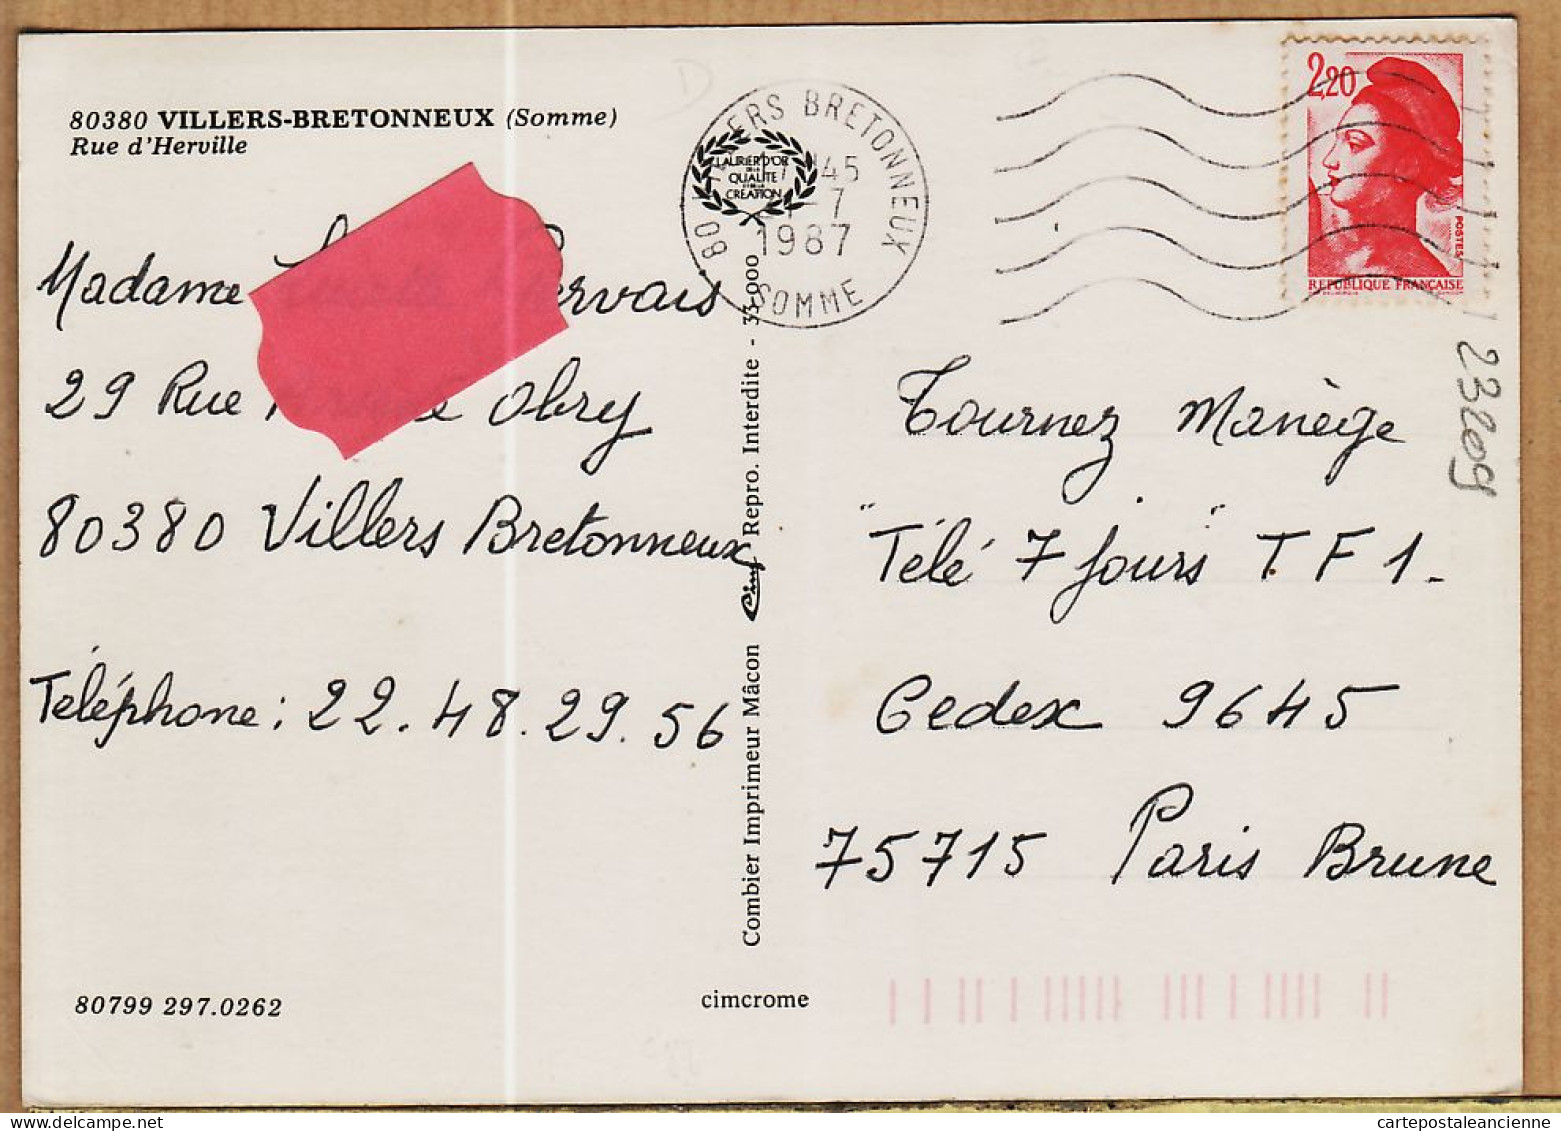 80380 VILLERS-BRETONNEUX (Somme)
Rue d'Herville
Madame
29 Rue Obry
80380 Villers Bretonneux
Téléphone : 22.48.29.56
80799 297.0262
LAURIER D'OR
DE LA
QUALITÉ
ET DE LA
CRÉATION
BRETONNEUX
45
7
1987
SOMME
80
Combier Imprimeur Mâcon Cim Repro. Interdite - 33-000
cimcrome
2,20
POSTES
REPUBLIQUE FRANÇAISE
23209
Tournez Manège
"Télé 7 Jours" T.F1-
Cedex 9645
75715 Paris Brune
cartepostaleancienne.com